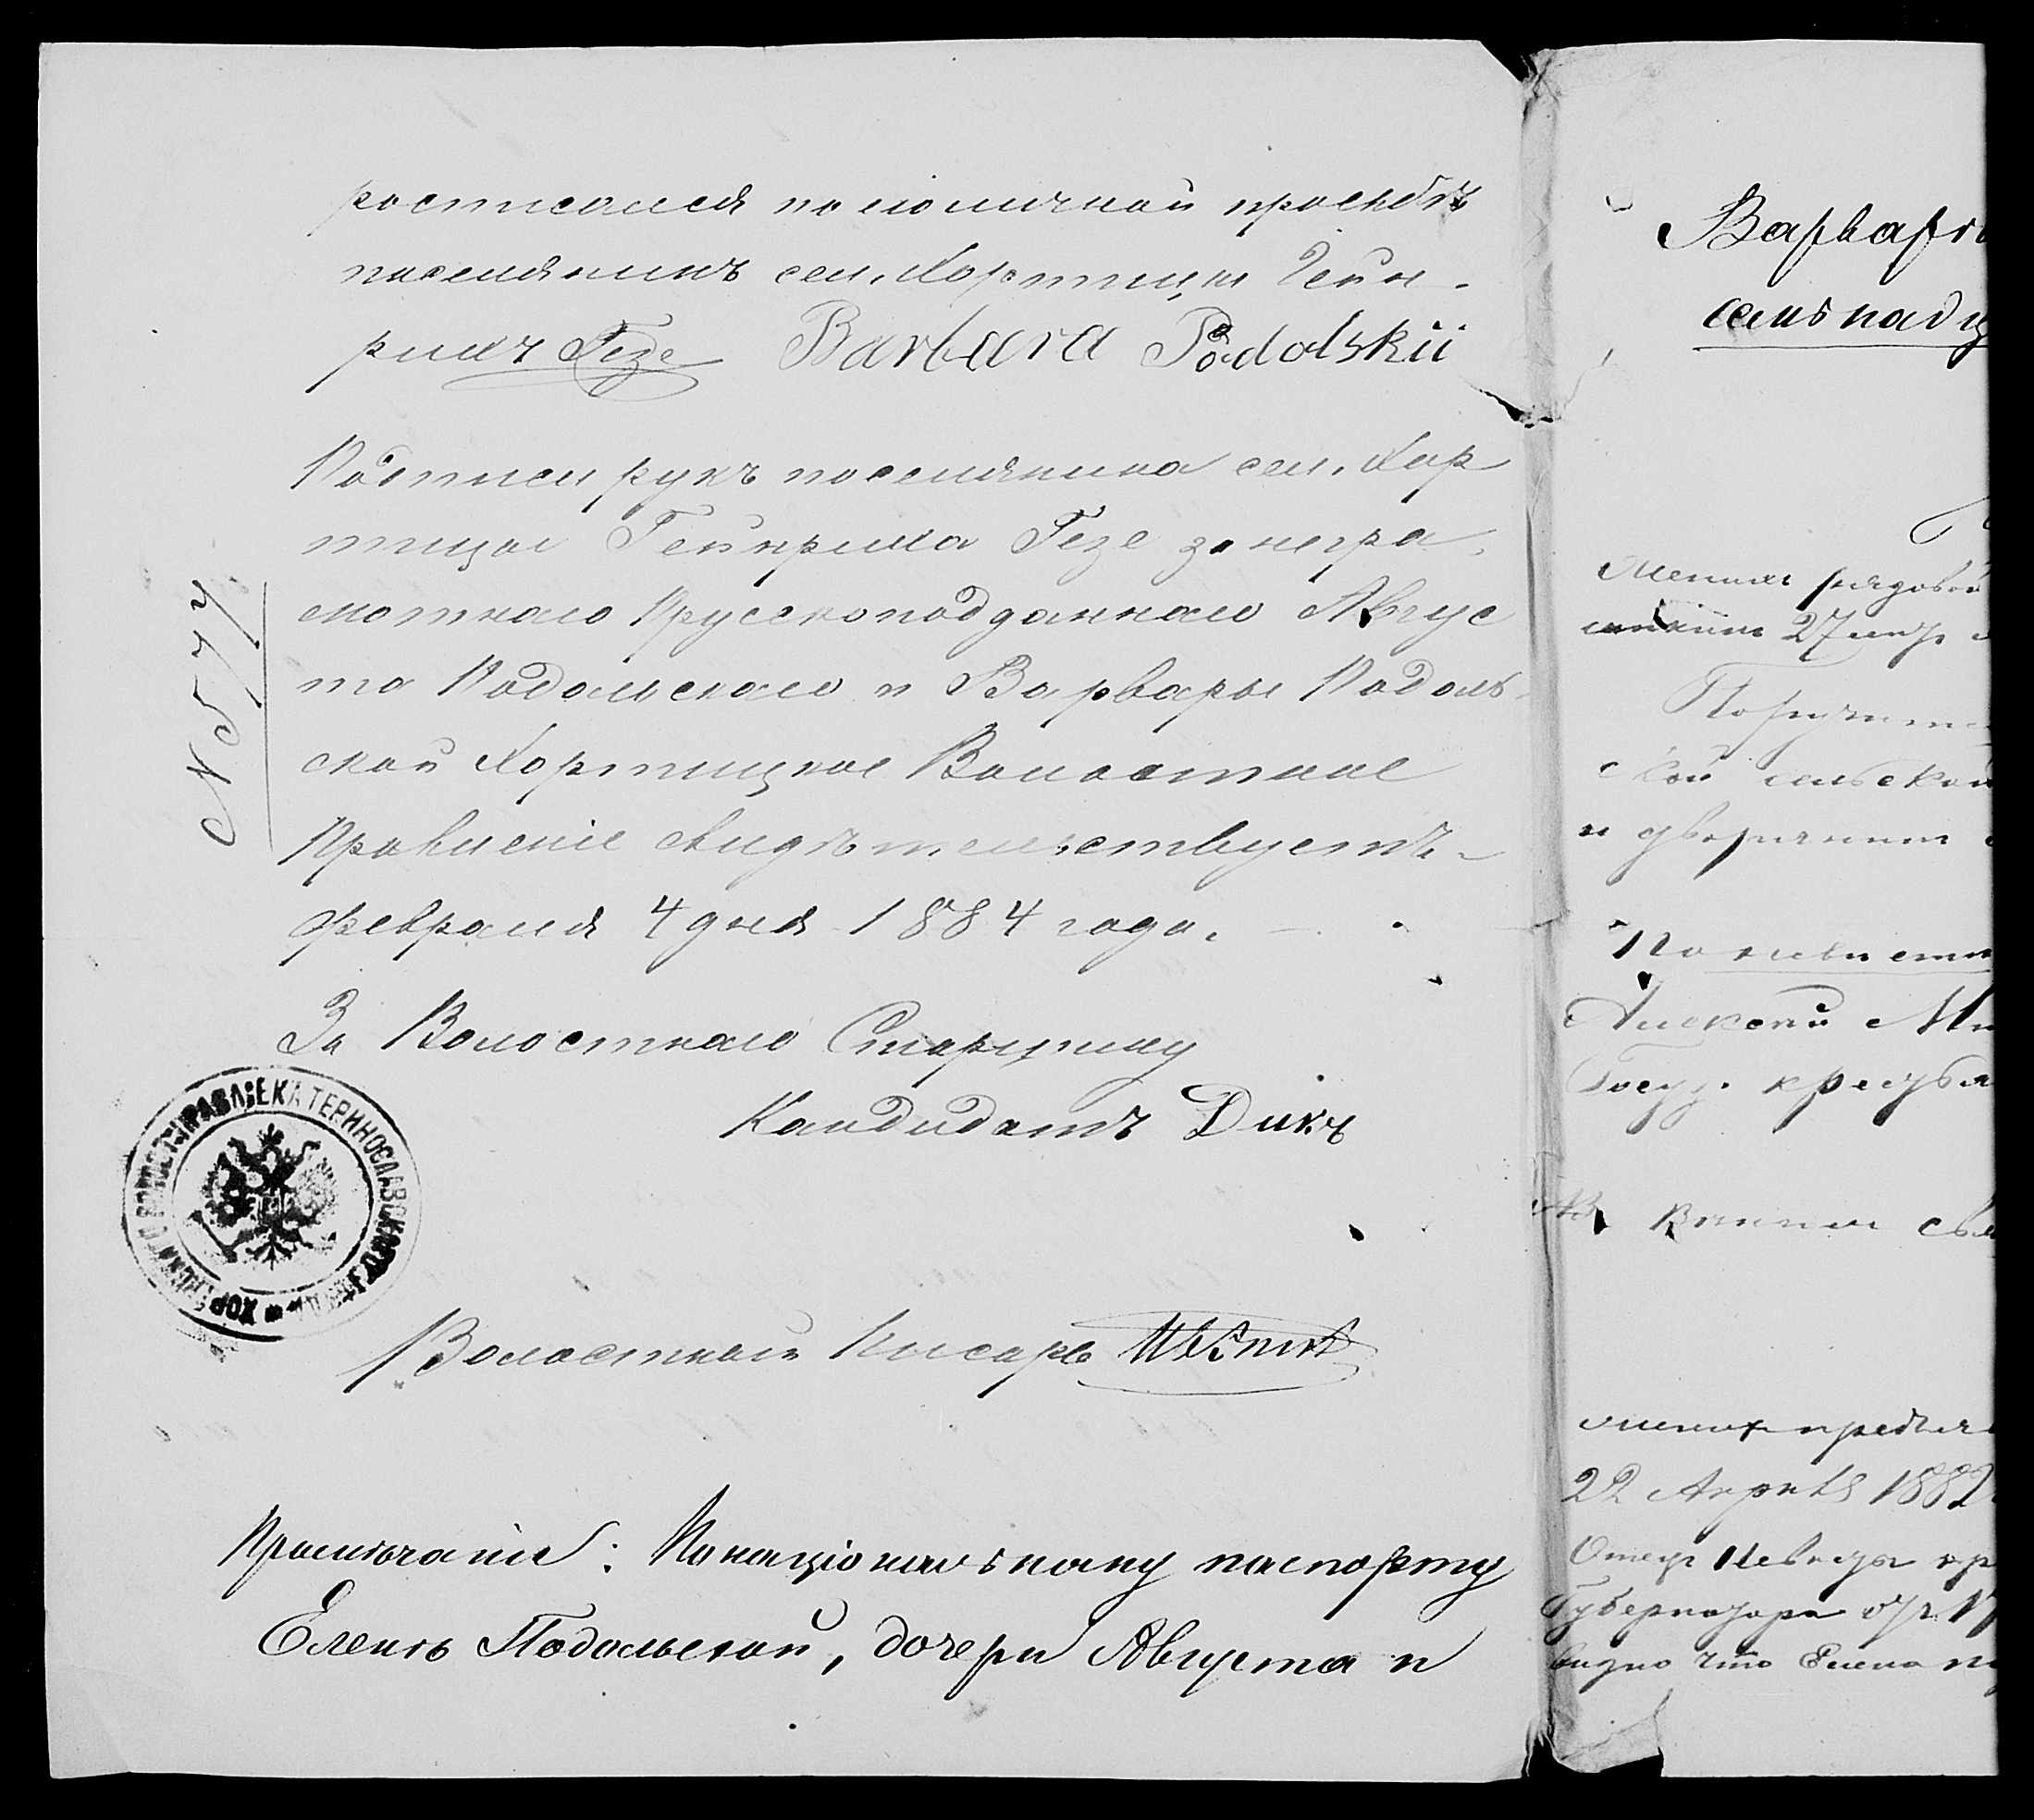 росписался по личной просьбѣ
поселянинъ сел. Хортицы Гейн-
рихъ Гезе Barbara Podolskii
Подписи рукъ поселянина сел. Хор
тицы Гейнриха Гезе за негра-
мотнаго Прусскоподданнаго Авгус
та Подольскаго и Варвары Подоль-
ской Хортицкое Волостное
Правленіе свидѣтельствуетъ.-
Февраля 4 дня 1884 года.
№ 577
За Волостнаго Старшину
Кандидатъ Дикъ
ХОРТИЦКАГО ВОЛОСТ. ПРАВЛ. ЕКАТЕРИНОСЛАВСКАГО УѢЗДА
Волостной Писарь
Примѣчаніе: По національному паспорту
Еленѣ Подольской, дочери Августа и
Варвары
семьнадц
рядовой
27 мар
Поручит
ской сельской
и дворянин
По невѣстѣ
Алексѣй Ми
Госуд. крестья
предъя
22 Апрѣля 1882
Отец Невѣсты пр
Губернатора отъ 17
видно что Елена